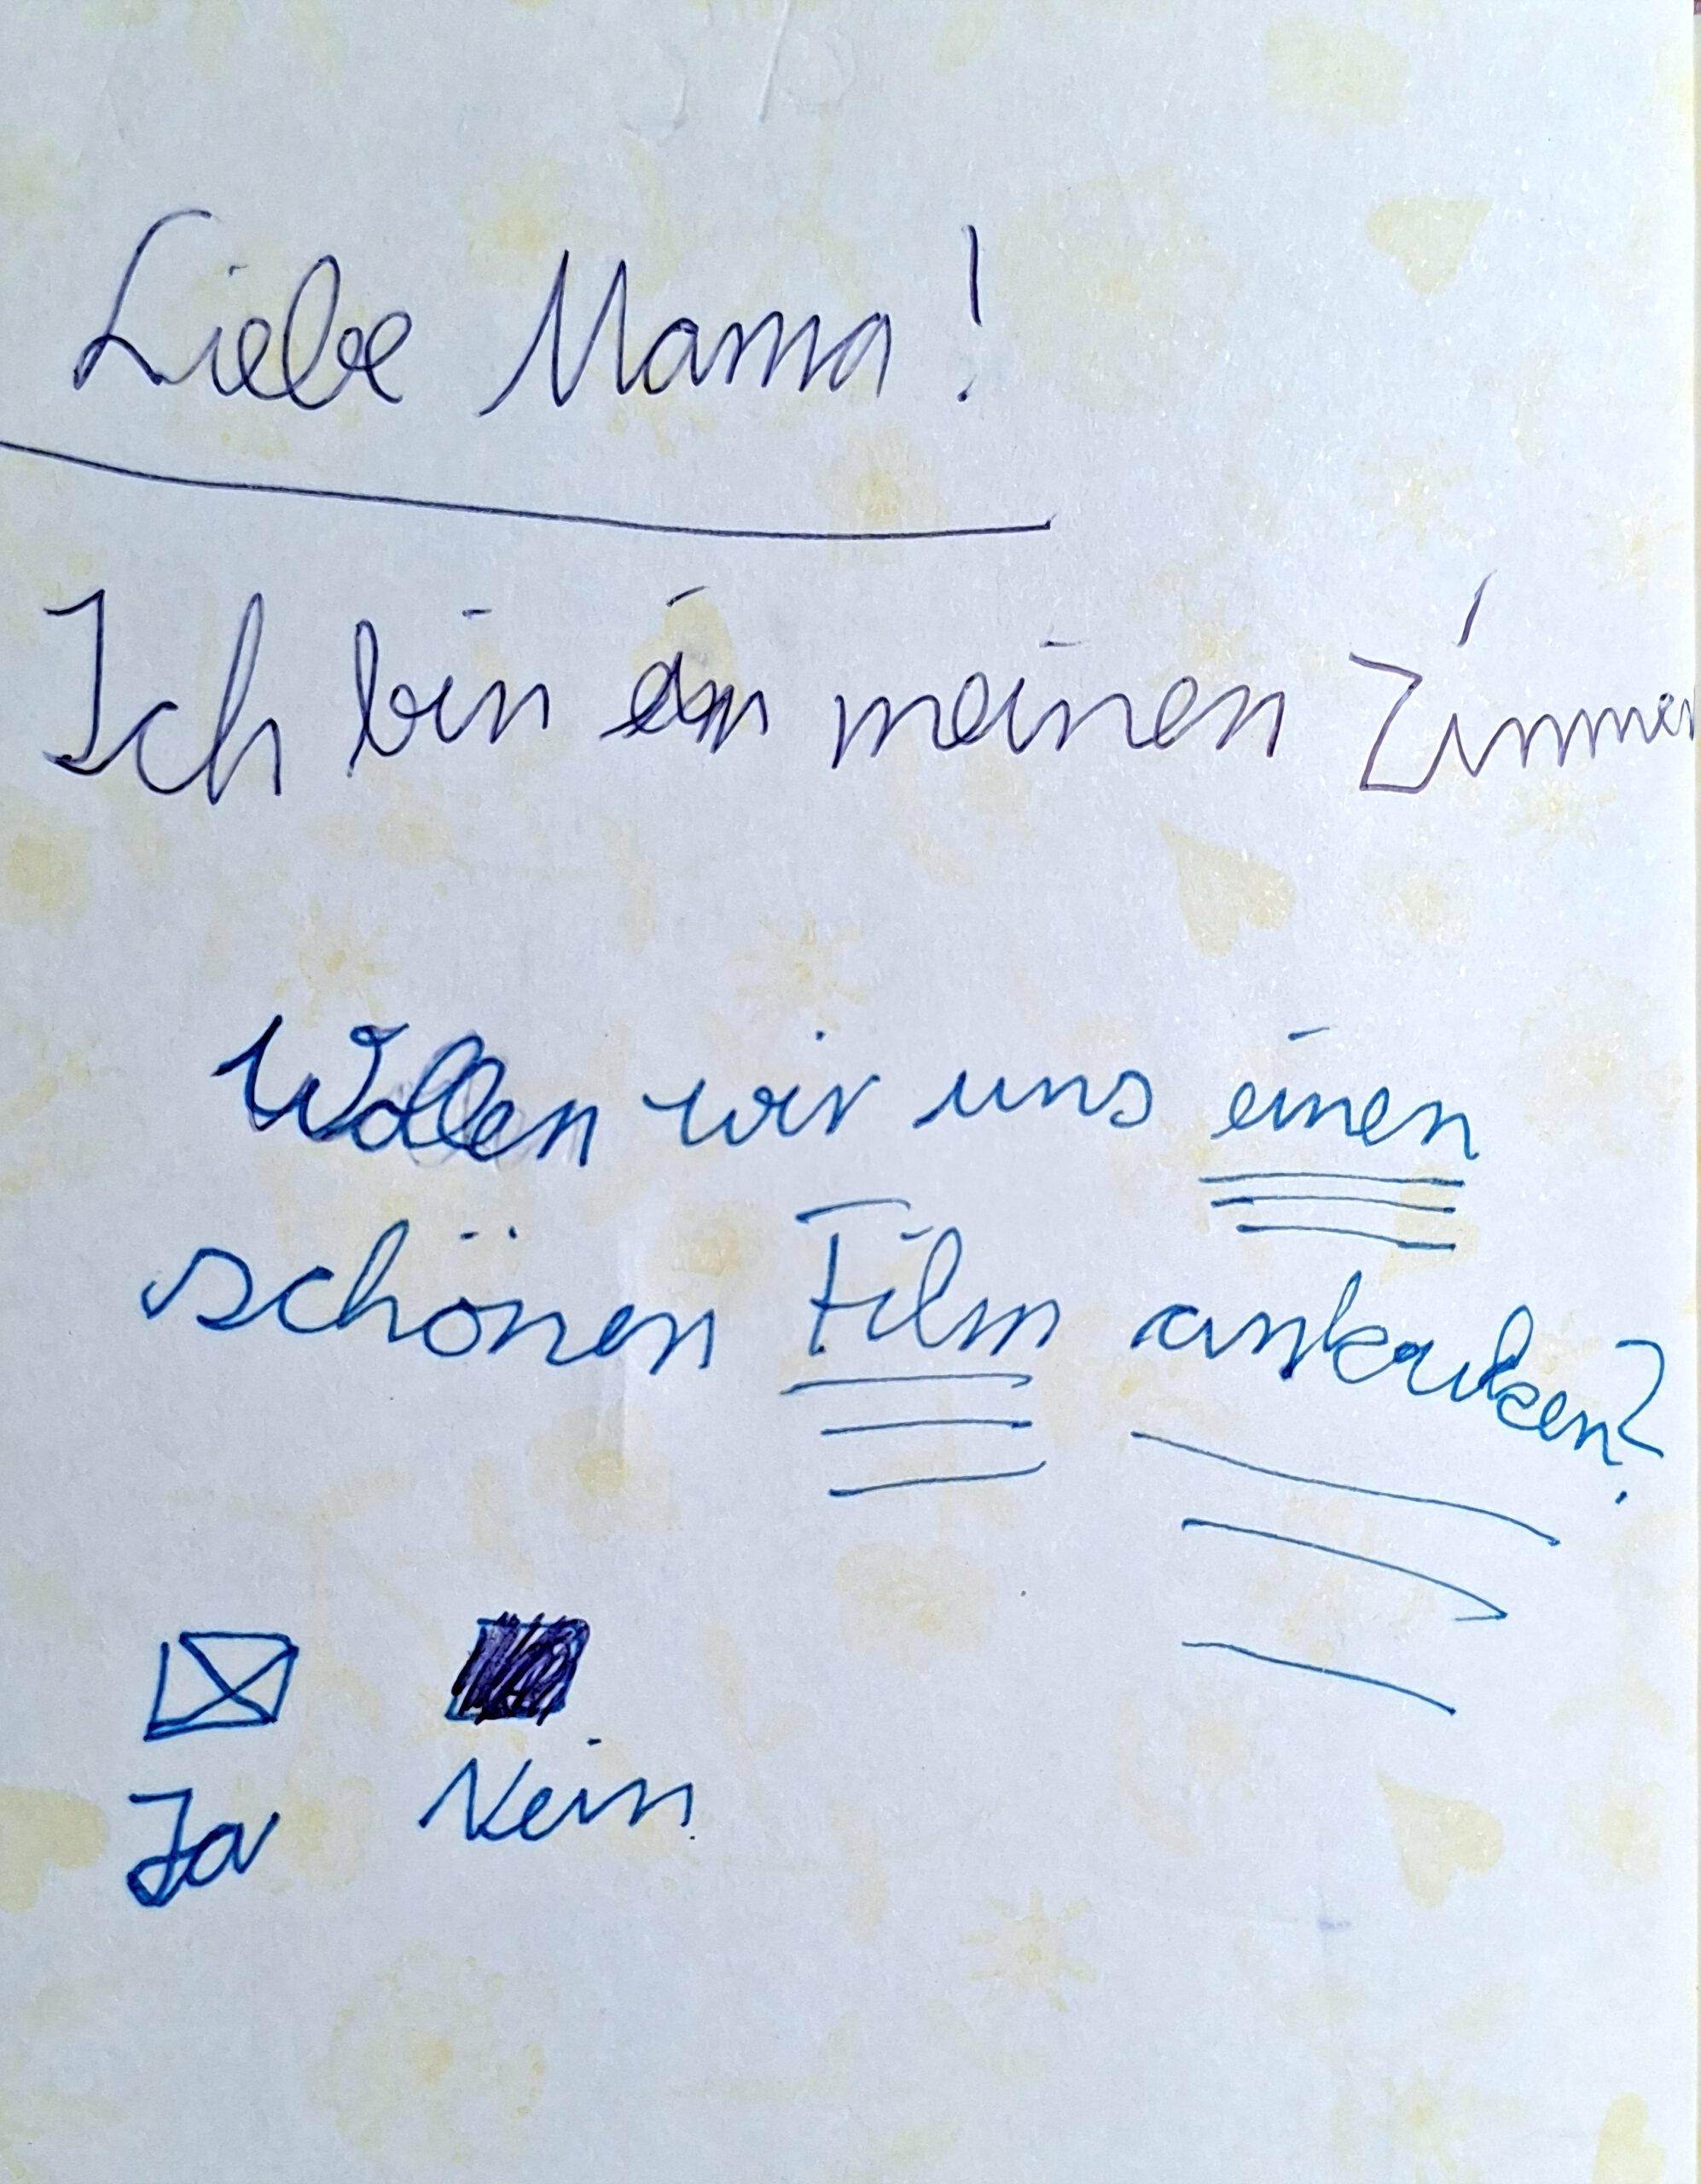 Liebe Mama!
Ich bin in meinen Zimmer
Wollen wir uns einen
schönen Film ankuken?
Ja Nein